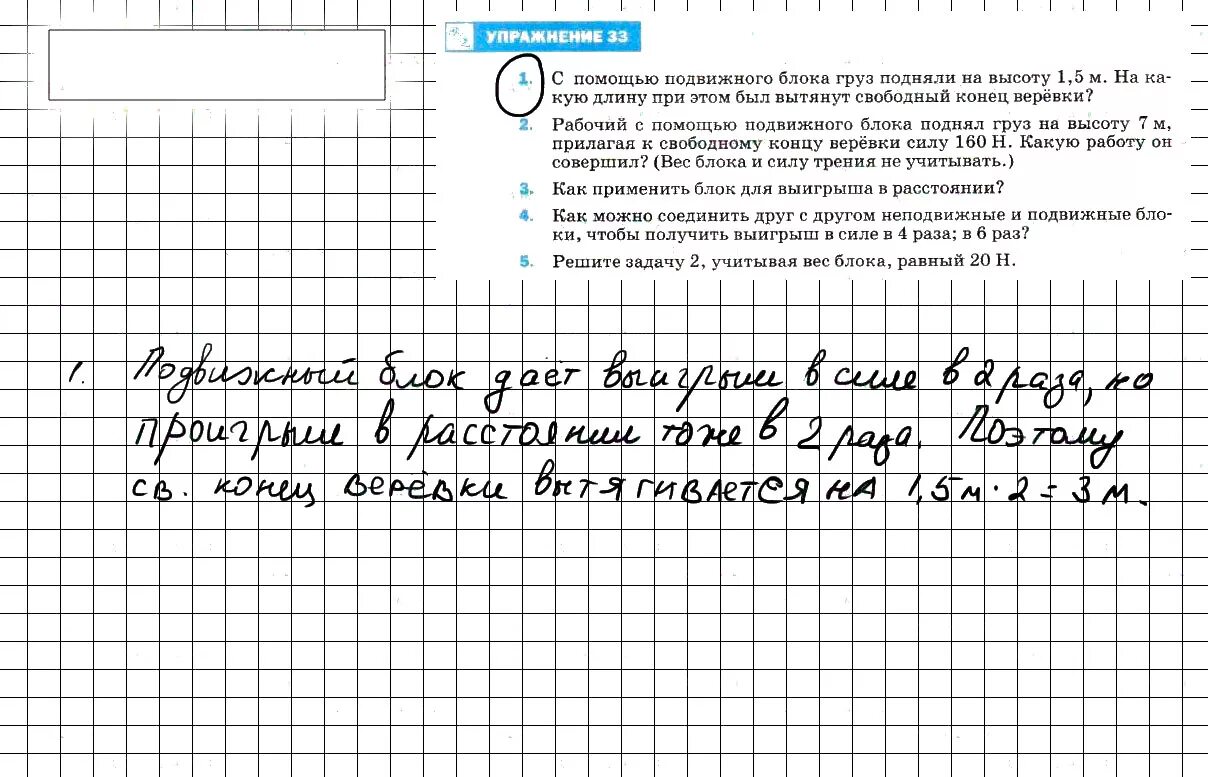 УПРАЖНЕНИЕ 33
1. С помощью подвижного блока груз подняли на высоту 1,5 м. На ка-
кую длину при этом был вытянут свободный конец верёвки?
2. Рабочий с помощью подвижного блока поднял груз на высоту 7 м,
прилагая к свободному концу верёвки силу 160 Н. Какую работу он
совершил? (Вес блока и силу трения не учитывать.)
3. Как применить блок для выигрыша в расстоянии?
4. Как можно соединить друг с другом неподвижные и подвижные бло-
ки, чтобы получить выигрыш в силе в 4 раза; в 6 раз?
5. Решите задачу 2, учитывая вес блока, равный 20 Н.
1. Подвижный блок даёт выигрыш в силе в 2 раза, но
проигрыш в расстоянии тоже в 2 раза. Поэтому
св. конец верёвки вытягивается на 1,5 м · 2 = 3 м.